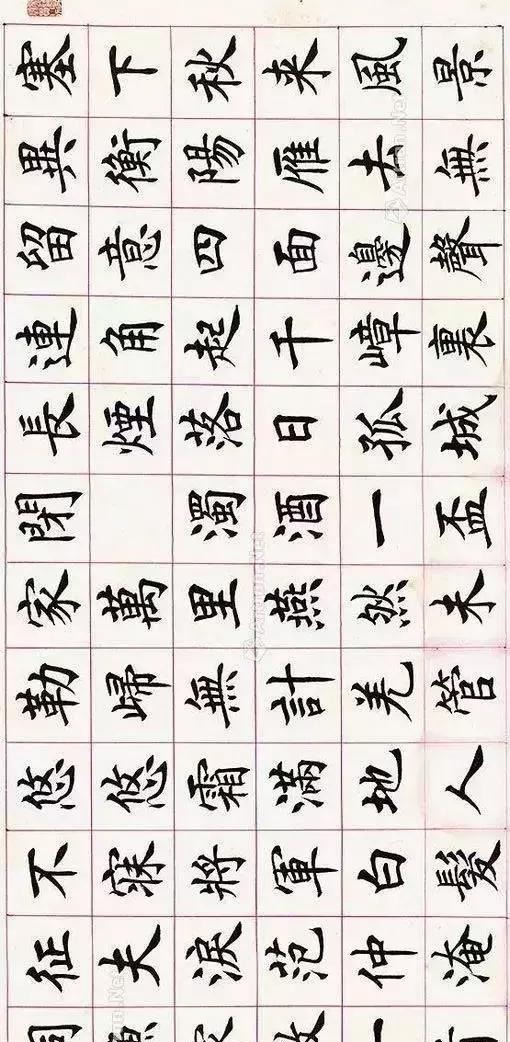 塞下秋来風景
異衡陽雁去無
留意四面邊聲
連角起千嶂裏
長煙落日孤城
閉 濁酒一盃
家萬里燕然未
勒歸無計羌管
悠悠霜滿地人
不寐將軍白髮
征夫淚范仲淹